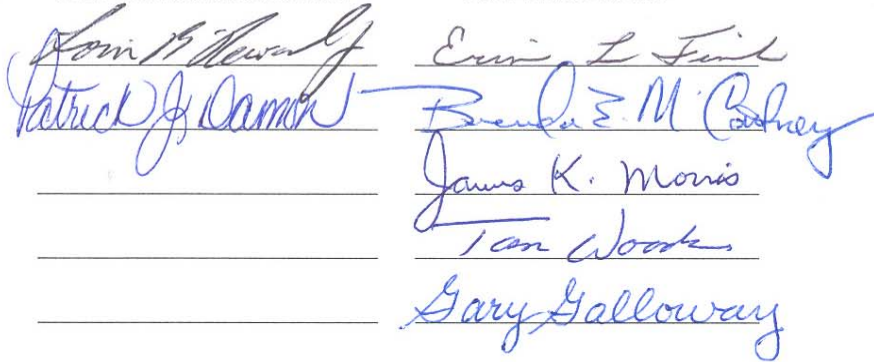 Patrick J. Damon
Erin L Fink
Brenda E. McCartney
James K. Morris
Tom Woods
Gary Galloway